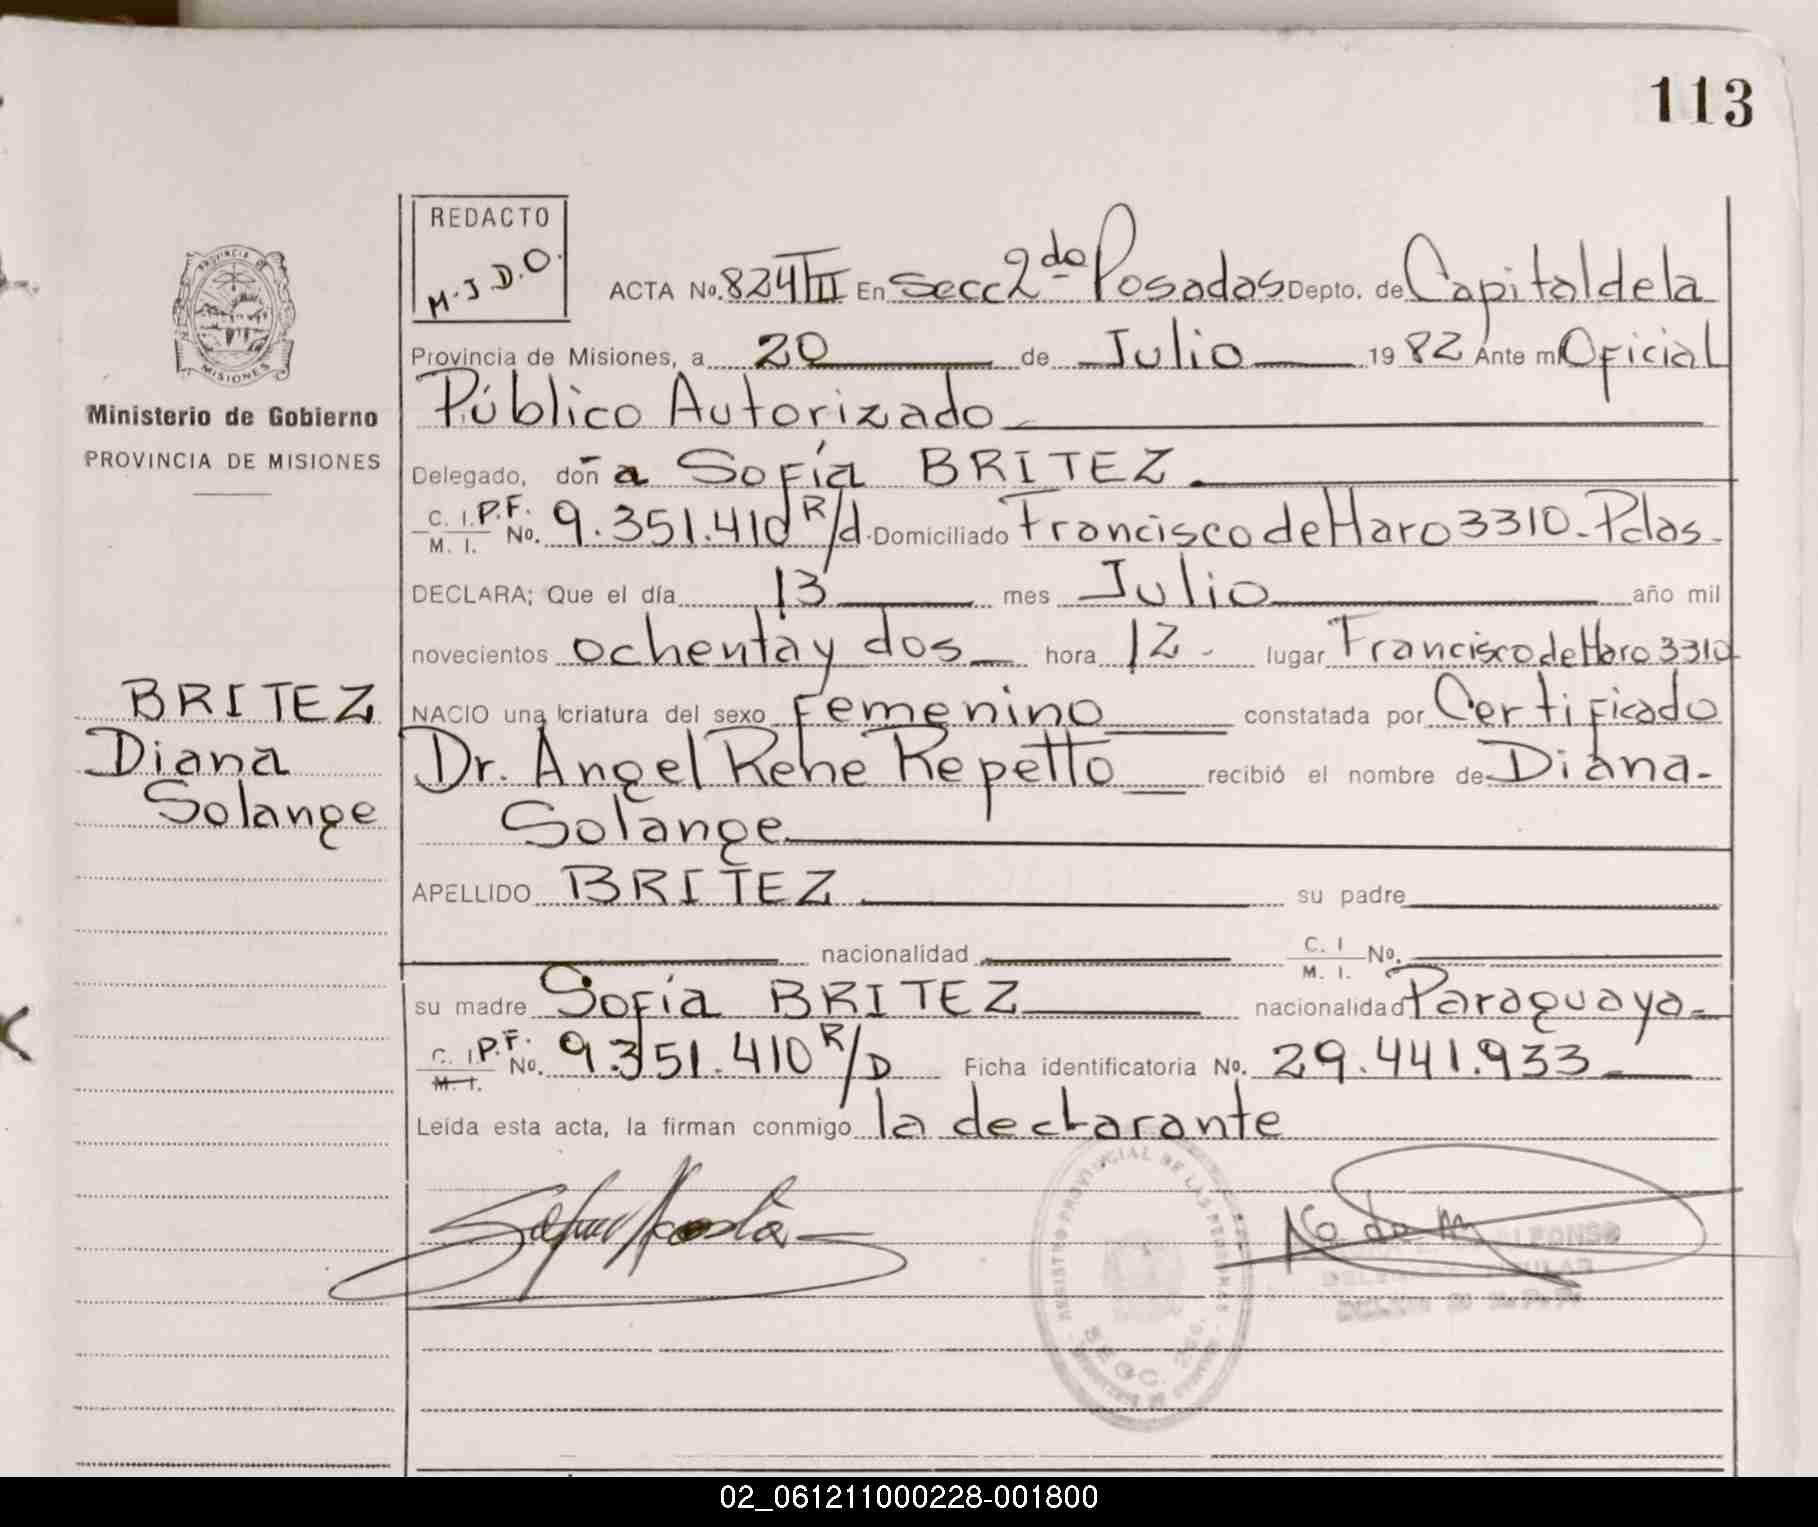 113
REDACTO
M.J.D.O.
ACTA No. 824 TIII En Secc 2da Posadas Depto. de Capital de la
Provincia de Misiones, a 20 de Julio 1982 Ante mí Oficial
Público Autorizado
PROVINCIA DE
MISIONES
Ministerio de Gobierno
PROVINCIA DE MISIONES
Delegado, doña Sofía BRITEZ
C. I. P.F. No. 9.351.410 R/d. Domiciliado Francisco de Haro 3310 - Pdas.
M. I.
DECLARA; Que el día 13 mes Julio año mil
novecientos ochenta y dos hora 12 - lugar Francisco de Haro 3310
NACIO una criatura del sexo Femenino constatada por Certificado
Dr. Angel Rene Repetto recibió el nombre de Diana -
Solange
BRITEZ
Diana
Solange
APELLIDO BRITEZ su padre
nacionalidad C. I. No.
M. I.
su madre Sofía BRITEZ nacionalidad Paraguaya -
C. I. P.F. No. 9.351.410 R/D Ficha identificatoria No. 29.441.933
M. I.
Leída esta acta, la firman conmigo la declarante
REGISTRO PROVINCIAL DE LAS PERSONAS
02_061211000228-001800